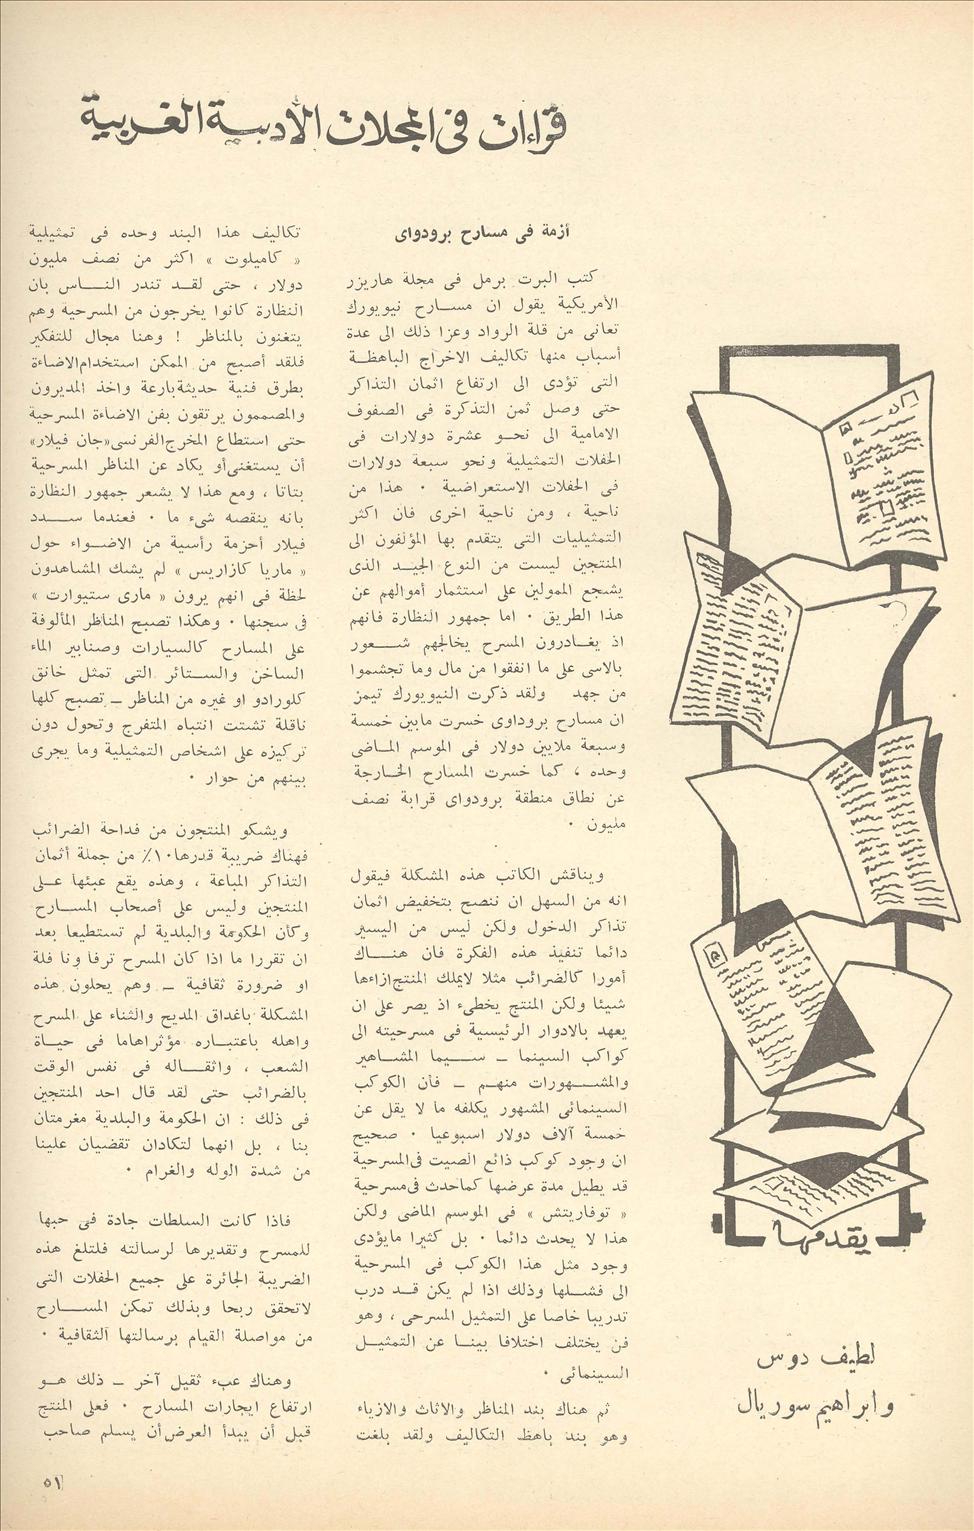 قراءات فى المجلات الأدبية الغربية
أزمة فى مسارح برودواى
كتب البرت برمل فى مجلة هاربزر
الأمريكية يقول ان مسارح نيويورك
تعانى من قلة الرواد وعزا ذلك الى عدة
أسباب منها تكاليف الاخراج الباهظة
التى تؤدى الى ارتفاع اثمان التذاكر
حتى وصل ثمن التذكرة فى الصفوف
الامامية الى نحو عشرة دولارات فى
الحفلات التمثيلية ونحو سبعة دولارات
فى الحفلات الاستعراضية . هذا من
ناحية ، ومن ناحية اخرى فان اكثر
التمثيليات التى يتقدم بها المؤلفون الى
المنتجين ليست من النوع الجيد الذى
يشجع الممولين على استثمار أموالهم عن
هذا الطريق . اما جمهور النظارة فانهم
اذ يغادرون المسرح يخالجهم شعور
بالاسى على ما انفقوا من مال وما تجشموا
من جهد ولقد ذكرت النيويورك تيمز
ان مسارح بروداوى خسرت مابين خمسة
وسبعة ملايين دولار فى الموسم الماضى
وحده ، كما خسرت المسارح الخارجة
عن نطاق منطقة برودواى قرابة نصف
مليون .
ويناقش الكاتب هذه المشكلة فيقول
انه من السهل ان ننصح بتخفيض اثمان
تذاكر الدخول ولكن ليس من اليسير
دائما تنفيذ هذه الفكرة فان هناك
أمورا كالضرائب مثلا لايملك المنتج ازاءها
شيئا ولكن المنتج يخطىء اذ يصر على ان
يعهد بالادوار الرئيسية فى مسرحيته الى
كواكب السينما – سيما المشاهير
والمشهورات منهم – فان الكوكب
السينمائى المشهور يكلفه ما لا يقل عن
خمسة آلاف دولار اسبوعيا . صحيح
ان وجود كوكب ذائع الصيت فى المسرحية
قد يطيل مدة عرضها كما حدث فى مسرحية
« توفاريتش » فى الموسم الماضى ولكن
هذا لا يحدث دائما . بل كثيرا مايؤدى
وجود مثل هذا الكوكب فى المسرحية
الى فشلها وذلك اذا لم يكن قد درب
تدريبا خاصا على التمثيل المسرحى ، وهو
فن يختلف اختلافا بينا عن التمثيل
السينمائى .
ثم هناك بند المناظر والاثاث والازياء
وهو بند باهظ التكاليف ولقد بلغت
تكاليف هذا البند وحده فى تمثيلية
« كاميلوت » اكثر من نصف مليون
دولار ، حتى لقد تندر الناس بان
النظارة كانوا يخرجون من المسرحية وهم
يتغنون بالمناظر ! وهنا مجال للتفكير
فلقد أصبح من الممكن استخدام الاضاءة
بطرق فنية حديثة بارعة واخذ المديرون
والمصممون يرتقون بفن الاضاءة المسرحية
حتى استطاع المخرج الفرنسى «جان فيلار»
أن يستغنى أو يكاد عن المناظر المسرحية
بتاتا ، ومع هذا لا يشعر جمهور النظارة
بانه ينقصه شىء ما . فعندما سدد
فيلار أحزمة رأسية من الاضواء حول
« ماريا كازاريس » لم يشك المشاهدون
لحظة فى انهم يرون « مارى ستيوارت »
فى سجنها . وهكذا تصبح المناظر المألوفة
على المسارح كالسيارات وصنابير الماء
الساخن والستائر التى تمثل خانق
كلورادو او غيره من المناظر – تصبح كلها
ناقلة تشتت انتباه المتفرج وتحول دون
تركيزه على اشخاص التمثيلية وما يجرى
بينهم من حوار .
ويشكو المنتجون من فداحة الضرائب
فهناك ضريبة قدرها ١٠٪ من جملة أثمان
التذاكر المباعة ، وهذه يقع عبئها على
المنتجين وليس على أصحاب المسارح
وكأن الحكومة والبلدية لم تستطيعا بعد
ان تقررا ما اذا كان المسرح ترفا ونافلة
او ضرورة ثقافية – وهم يحلون هذه
المشكلة باغداق المديح والثناء على المسرح
واهله باعتباره مؤثرا هاما فى حياة
الشعب ، واثقاله فى نفس الوقت
بالضرائب حتى لقد قال احد المنتجين
فى ذلك : ان الحكومة والبلدية مغرمتان
بنا ، بل انهما لتكادان تقضيان علينا
من شدة الوله والغرام .
فاذا كانت السلطات جادة فى حبها
للمسرح وتقديرها لرسالته فلتلغ هذه
الضريبة الجائرة على جميع الحفلات التى
لاتحقق ربحا وبذلك تمكن المسارح
من مواصلة القيام برسالتها الثقافية .
وهناك عبء ثقيل آخر – ذلك هو
ارتفاع ايجارات المسارح . فعلى المنتج
قبل أن يبدأ العرض أن يسلم صاحب
يقدمها
لطيف دوس
وابراهيم سوريال
٥١